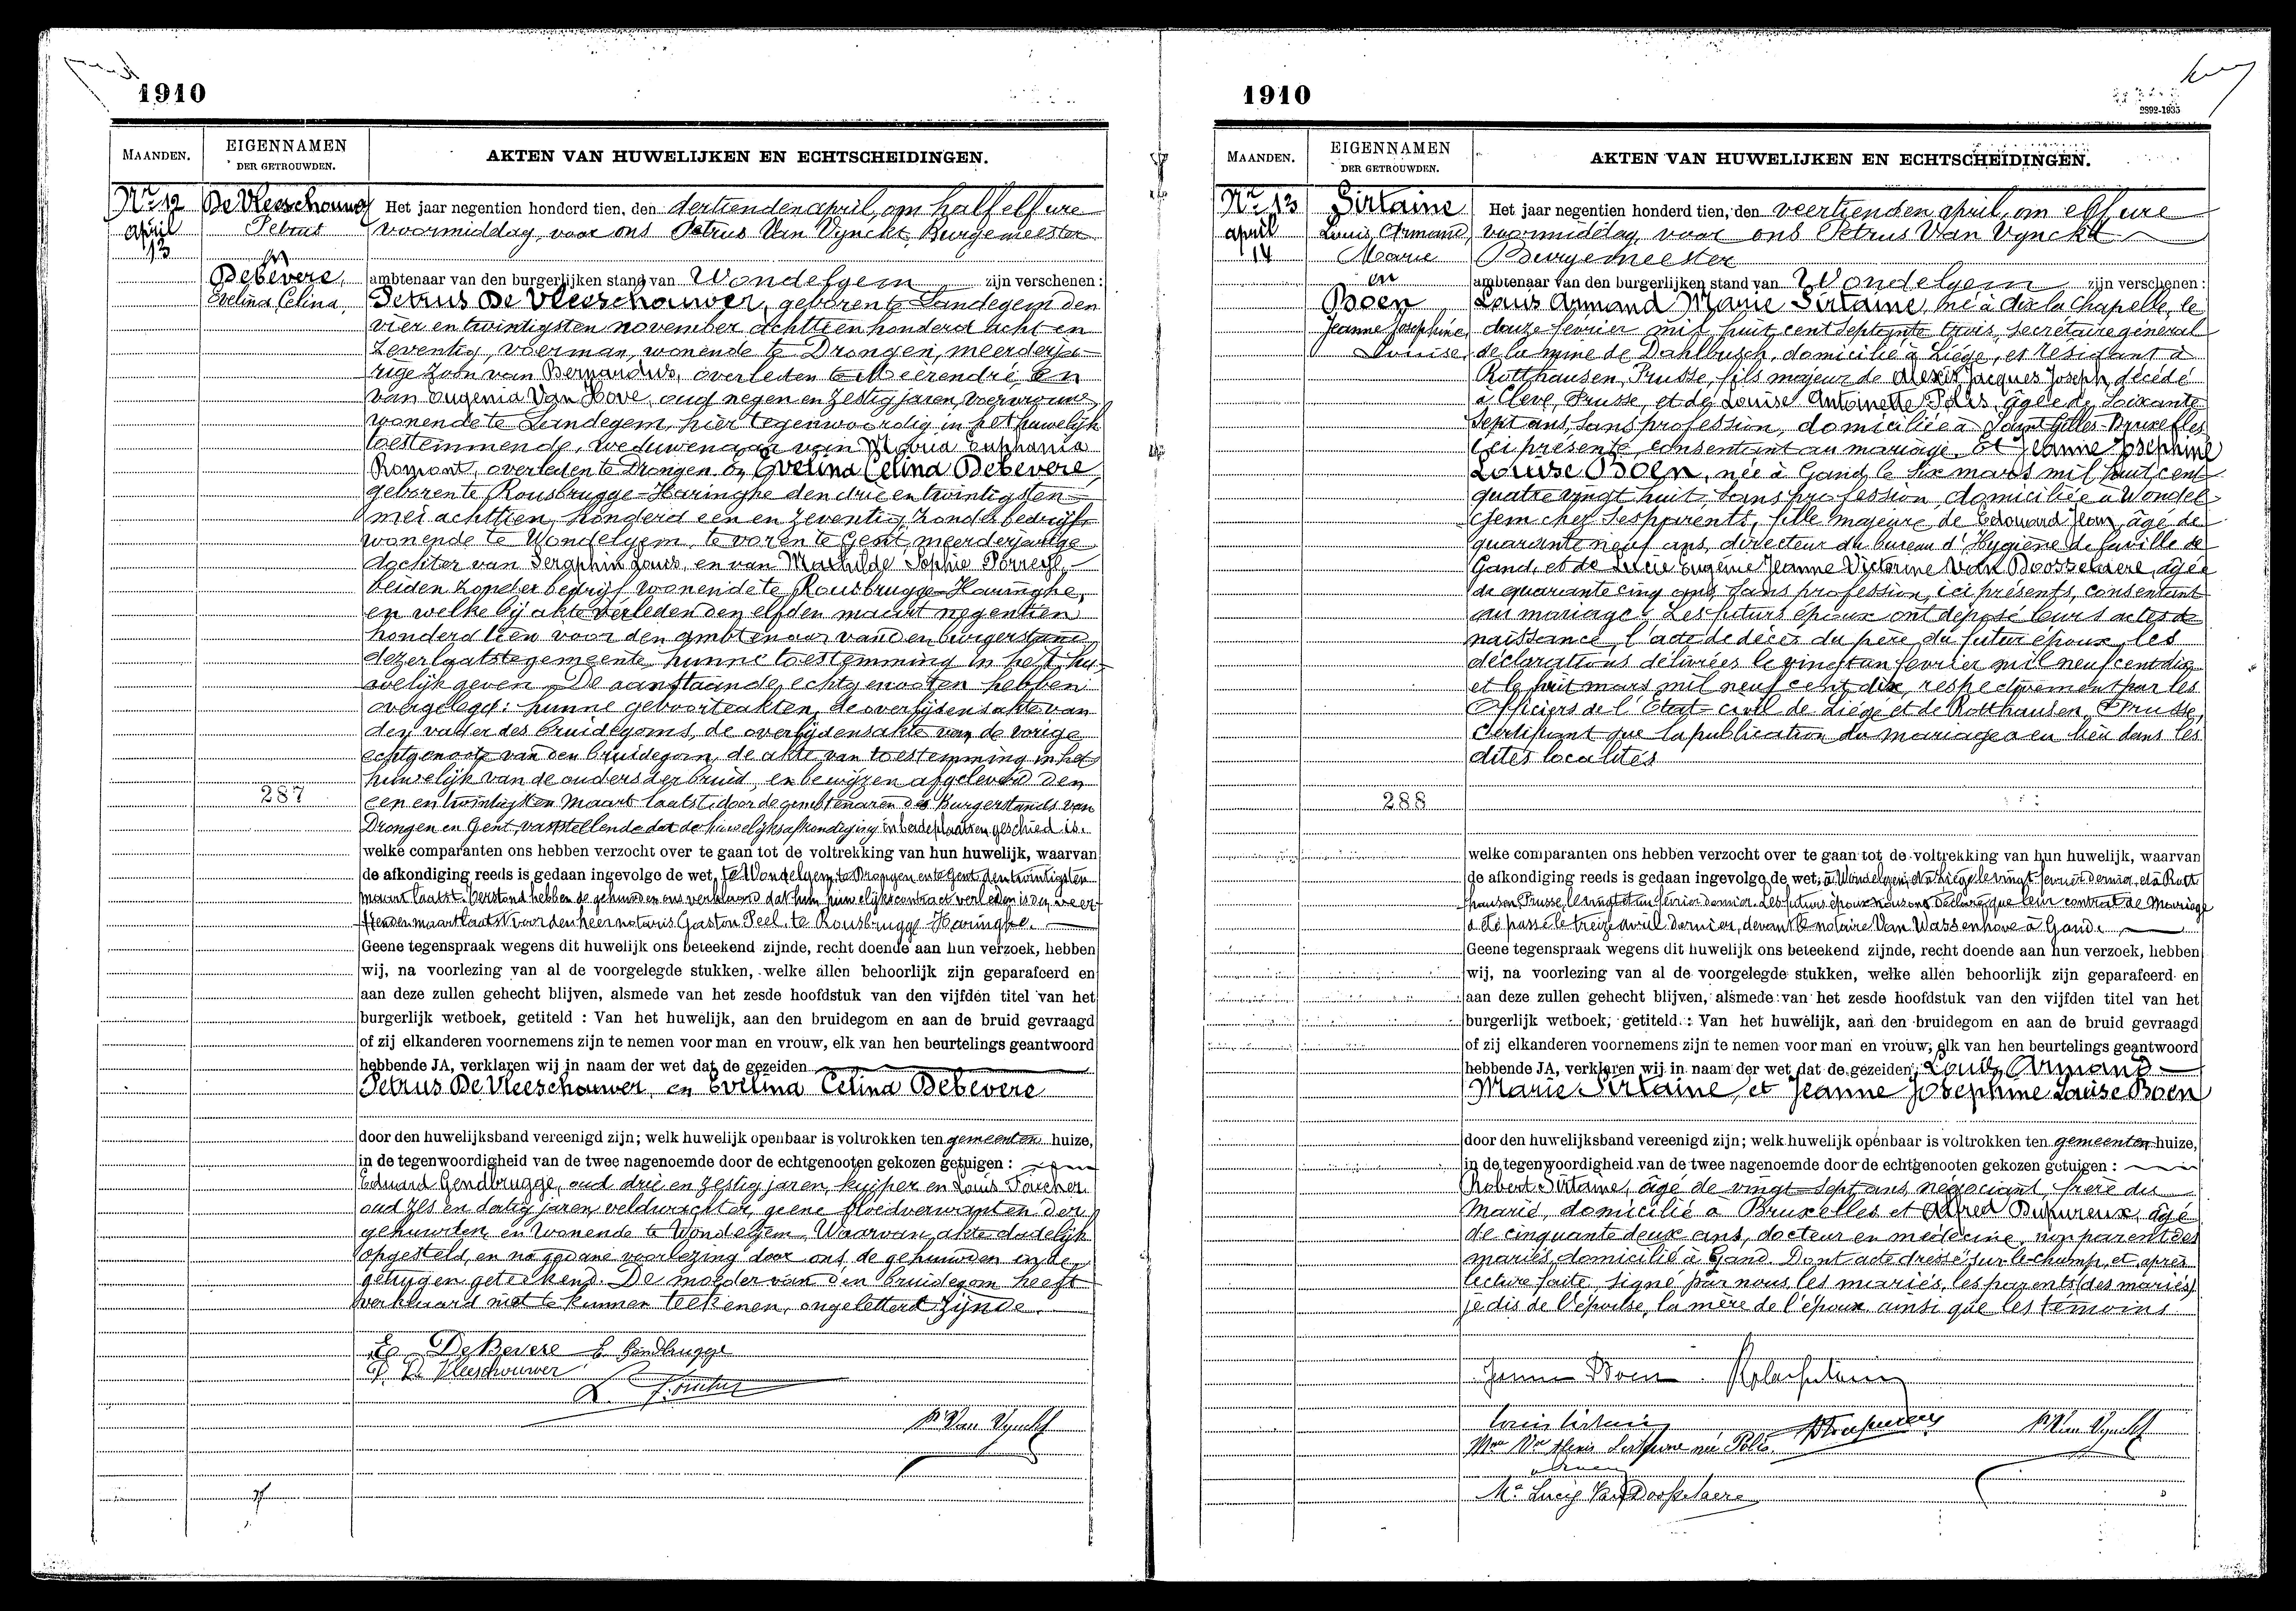 1910
MAANDEN.
EIGENNAMEN
DER GETROUWDEN.
AKTEN VAN HUWELIJKEN EN ECHTSCHEIDINGEN.
Nr 12
april
13
De Vleeschouwer
Petrus
en
Debevere,
Evelina Celina,
Het jaar negentien honderd tien, den dertienden april, om half elf ure
voormiddag, voor ons Petrus Van Vynckt, Burgemeester
ambtenaar van den burgerlijken stand van Wondelgem zijn verschenen :
Petrus De Vleeschouwer, geboren te Landegem den
vier en twintigsten november achttien honderd acht en
zeventig, voerman, wonende te Drongen, meerderja-
rige zoon van Bernardus, overleden te Meerendré, en
van Eugenia Van Hove, oud negen en zestig jaren, voervrouw
wonende te Landegem, hier tegenwoordig in het huwelijk
toestemmende, weduwenaar van Maria Euphania
Romont, overleden te Drongen en Evelina Celina Debevere,
geboren te Rousbrugge-Haringhe den drie en twintigsten
mei achttien honderd een en zeventig, zonder bedrijf
wonende te Wondelgem, te voren te Gent, meerderjarige
dochter van Seraphin Louis, en van Mathilde Sophie Porreye,
beiden zonder bedrijf wonende te Rousbrugge-Haringhe,
en welke bij akte verleden den elfden maart negentien
honderd tien voor den ambtenaar van den burgerstand
dezer laatste gemeente hunne toestemming in het hu-
welijk geven. De aanstaande echtgenooten hebben
overgelegd : hunne geboorteakten, de overlijdensakte van
den vader des bruidegoms, de overlijdensakte van de vorige
echtgenoote van den bruidegom, de akte van toestemming in het
huwelijk van de ouders der bruid, en bewijzen afgeleverd den
een en twintigsten Maart laatst, door de ambtenaren des Burgerstands van
Drongen en Gent, vaststellende dat de huwelijksafkondiging in beide plaatsen geschied is.
287
welke comparanten ons hebben verzocht over te gaan tot de voltrekking van hun huwelijk, waarvan
de afkondiging reeds is gedaan ingevolge de wet, te Wondelgem, te Drongen en te Gent den twintigsten
maart laatst. Verstand hebben de gehuwden ons verklaard dat hun huwelijkscontract verleden is den veer-
tienden maart laatst voor den heer notaris Gaston Peel te Rousbrugge-Haringhe.
Geene tegenspraak wegens dit huwelijk ons beteekend zijnde, recht doende aan hun verzoek, hebben
wij, na voorlezing van al de voorgelegde stukken, welke allen behoorlijk zijn geparafeerd en
aan deze zullen gehecht blijven, alsmede van het zesde hoofdstuk van den vijfden titel van het
burgerlijk wetboek, getiteld : Van het huwelijk, aan den bruidegom en aan de bruid gevraagd
of zij elkanderen voornemens zijn te nemen voor man en vrouw, elk van hen beurtelings geantwoord
hebbende JA, verklaren wij in naam der wet dat de gezeiden
Petrus De Vleeschouwer, en Evelina Celina Debevere
door den huwelijksband vereenigd zijn; welk huwelijk openbaar is voltrokken ten gemeenten huize,
in de tegenwoordigheid van de twee nagenoemde door de echtgenooten gekozen getuigen :
Eduard Gendbrugge, oud drie en zestig jaren, kuiper en Louis Foucher
oud zes en dertig jaren, veldwachter, geene bloedverwanten der
gehuwden, en wonende te Wondelgem. Waarvan akte dadelijk
opgesteld, en na gedane voorlezing door ons, de gehuwden en de
getuigen geteekend. De moeder van den bruidegom heeft
verklaard niet te kunnen teekenen, ongeletterd zijnde.
Ev. De Bevere E. Gendbrugge
P. De Vleeschouwer
L. Foucher
Pr Van Vynckt
1910
2892-1935
MAANDEN.
EIGENNAMEN
DER GETROUWDEN.
AKTEN VAN HUWELIJKEN EN ECHTSCHEIDINGEN.
Nr 13
april
14
Sirtaine
Louis Armand,
Marie
en
Boen
Jeanne Joséphine,
Louise,
Het jaar negentien honderd tien, den veertienden april, om elf ure
voormiddag voor ons Petrus Van Vynckt
Burgemeester
ambtenaar van den burgerlijken stand van Wondelgem zijn verschenen :
Louis Armand Marie Sirtaine, né à Aix la Chapelle, le
douze fevrier mil huit cent septante trois, secrétaire général
de la mine de Dahlbusch, domicilié à Liége, et résidant à
Rotthausen, Prusse, fils majeur de Alexis Jacques Joseph, décédé
à Clève, Prusse, et de Louise Antoinette Polis, âgée de soixante
sept ans, sans profession, domiciliée à Saint Gilles-Bruxelles
ici présente consentant au mariage. Et Jeanne Joséphine
Louise Boen, née à Gand, le six mars mil huit cent
quatre vingt huit, sans profession, domiciliée à Wondel-
gem chez ses parents, fille majeure de Edouard Jean, âgé de
quarante neuf ans, directeur du bureau d'Hygiène de la ville de
Gand, et de Lucie Eugénie Jeanne Victorine Van Doosselaere, âgée
de quarante cinq ans, sans profession, ici présents, consentant
au mariage. Les futurs époux ont déposé leurs actes de
naissance, l'acte de décès du père du futur époux, les
déclarations délivrées le vingt un fevrier mil neuf cent dix
et le huit mars mil neuf cent dix, respectivement par les
Officiers de l'État-civil de Liége et de Rotthausen, Prusse,
certifiant que la publication du mariage a eu lieu dans les
dites localités
288
welke comparanten ons hebben verzocht over te gaan tot de voltrekking van hun huwelijk, waarvan
de afkondiging reeds is gedaan ingevolge de wet, à Wondelgem, et à Liége le vingt fevrier dernier, et à Rott-
hausen, Prusse, le vingt et un février dernier. Les futurs époux nous ont déclaré que leur contrat de Mariage
a été passé le treize avril dernier, devant le notaire Van Wassenhove à Gand.
Geene tegenspraak wegens dit huwelijk ons beteekend zijnde, recht doende aan hun verzoek, hebben
wij, na voorlezing van al de voorgelegde stukken, welke allen behoorlijk zijn geparafeerd en
aan deze zullen gehecht blijven, alsmede van het zesde hoofdstuk van den vijfden titel van het
burgerlijk wetboek, getiteld : Van het huwelijk, aan den bruidegom en aan de bruid gevraagd
of zij elkanderen voornemens zijn te nemen voor man en vrouw, elk van hen beurtelings geantwoord
hebbende JA, verklaren wij in naam der wet dat de gezeiden, Louis Armand
Marie Sirtaine, et Jeanne Joséphine Louise Boen
door den huwelijksband vereenigd zijn; welk huwelijk openbaar is voltrokken ten gemeenten huize,
in de tegenwoordigheid van de twee nagenoemde door de echtgenooten gekozen getuigen :
Robert Sirtaine, âgé de vingt-sept ans, négociant, frère du
Marié, domicilié à Bruxelles et Alfred Dupureux, âgé
de cinquante deux ans, docteur en médecine, non parent des
mariés, domicilié à Gand. Dont acte dressé sur le champ, et après
lecture faite, signé par nous, les mariés, les parents (des mariés)
je dis de l'épouse, la mère de l'époux ainsi que les témoins
Jeanne Boen
Louis Sirtaine
Pr Van Vynckt
Mme Vve Alexis Sirtaine née Polis
Ma Lucie Van Doosselaere